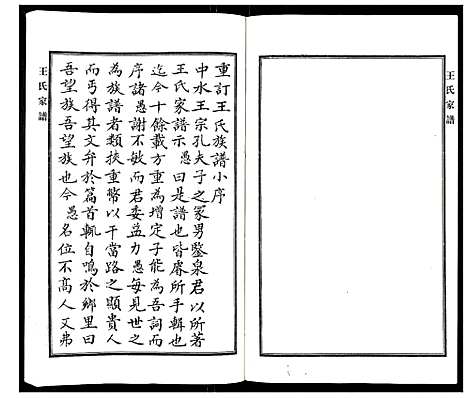 王氏家譜
重訂王氏族譜小序
中水王宗孔夫子之冢男鑒泉君以所著
王氏家譜示愚曰是譜也皆𠪱所手輯也
迄今十餘載方重為增定子能為吾詞而
序諸愚謝不敏而君委益力愚每見世之
為族譜者類挾重幣以干當路之顯貴人
而丐得其文弁於篇首輒自鳴於鄉里曰
吾望族吾望族也今愚名位不高人又弗
王氏家譜